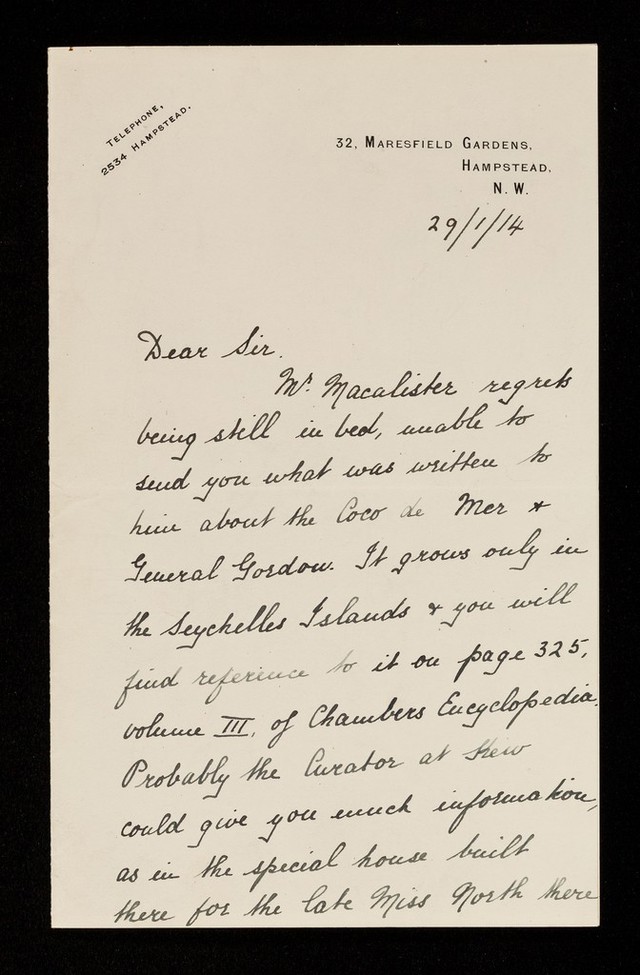 TELEPHONE,
2534 HAMPSTEAD.
32, MARESFIELD GARDENS,
HAMPSTEAD,
N. W.
29/1/14
Dear Sir.
Mr. Macalister regrets
being still in bed, unable to
send you what was written to
him about the Coco de Mer &
General Gordon. It grows only in
the Seychelles Islands & you will
find reference to it on page 325,
volume III, of Chambers Encyclopedia.
Probably the Curator at Kew
could give you much information,
as in the special house built
there for the late Miss North there